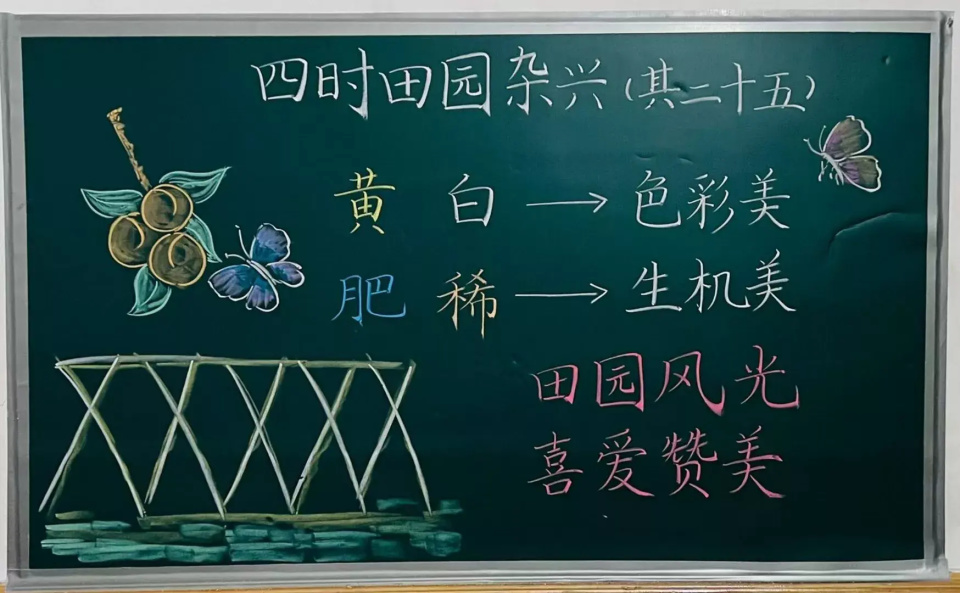 四时田园杂兴(其二十五)
黄 白 → 色彩美
肥 稀 → 生机美
田园风光
喜爱赞美